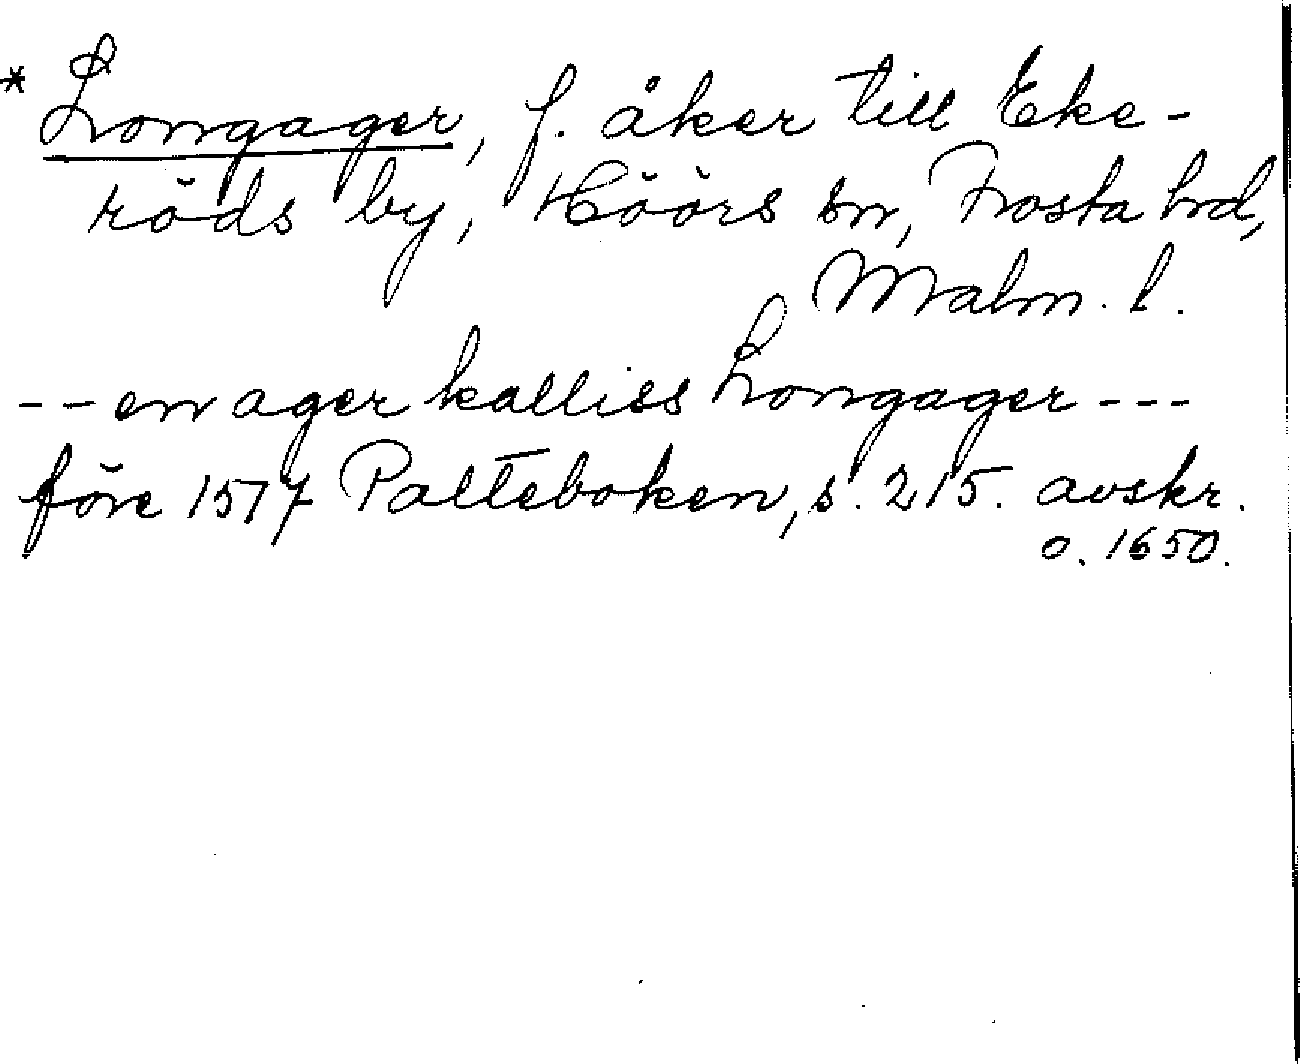 * Longager, f. åker till Eke-
röds by, Höörs sn, Frosta hrd,
Malm. l.
-- en ager kalliss Longager ---
före 1517 Palteboken, s. 215. avskr.
o. 1650.